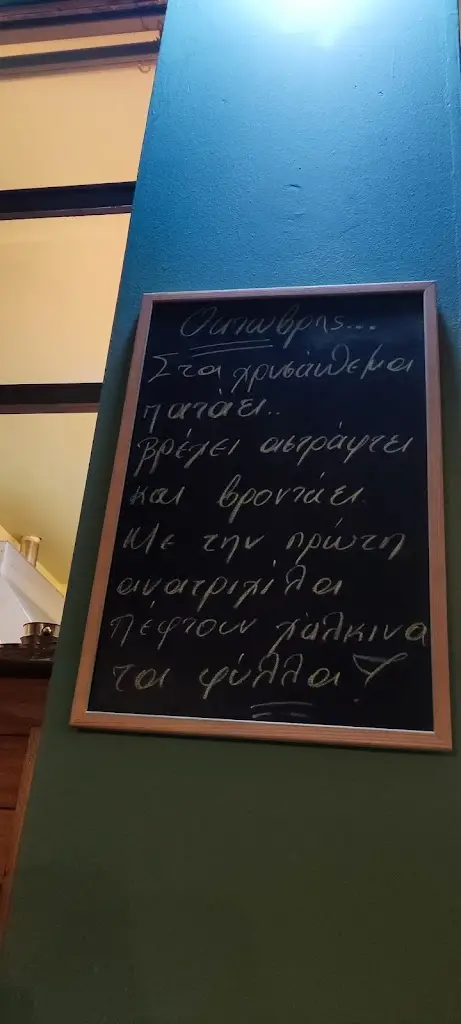 Οκτώβρης...
Στα χρυσάνθεμα
πατάει..
βρέχει αστράφτει
και βροντάει.
Με την πρώτη
ανατριχίλα
πέφτουν χάλκινα
τα φύλλα